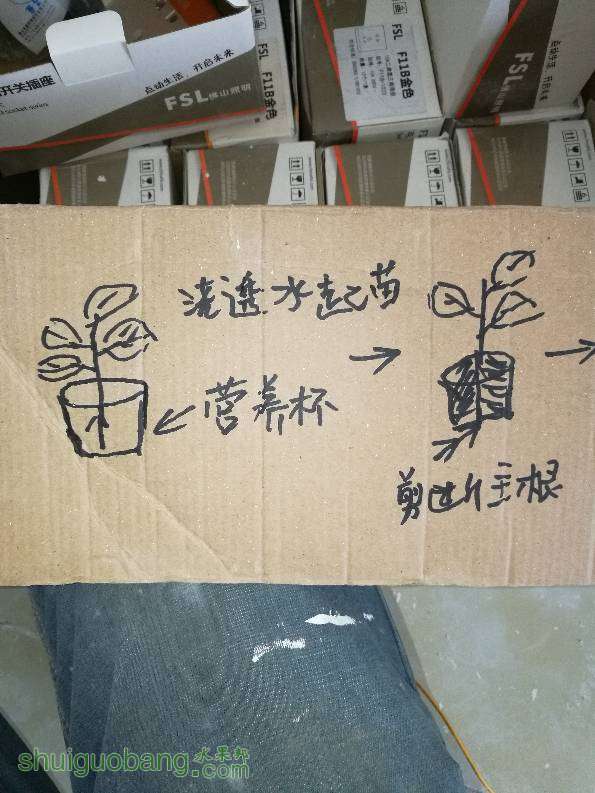 开关插座
点动生活，开启未来
FSL佛山照明
FSL F11B金色
FSL F11B金色
FSL佛山照明
点动生活，开启未来
浇透水起苗
营养杯
剪断主根
shuiguobang.com
水果邦